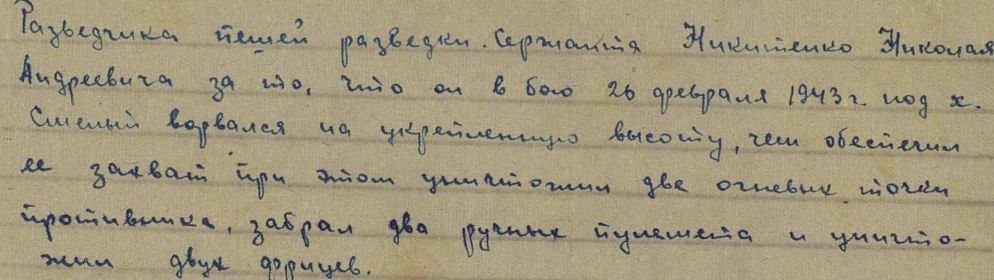 Разведчика пешей разведки. Сержанта Никитенко Николая
Андреевича за то, что он в бою 26 февраля 1943 г. под х.
Смелый ворвался на укрепленную высоту, чем обеспечил
ее захват при этом уничтожил две огневых точки
противника, забрал два ручных пулемета и уничто-
жил двух фрицев.